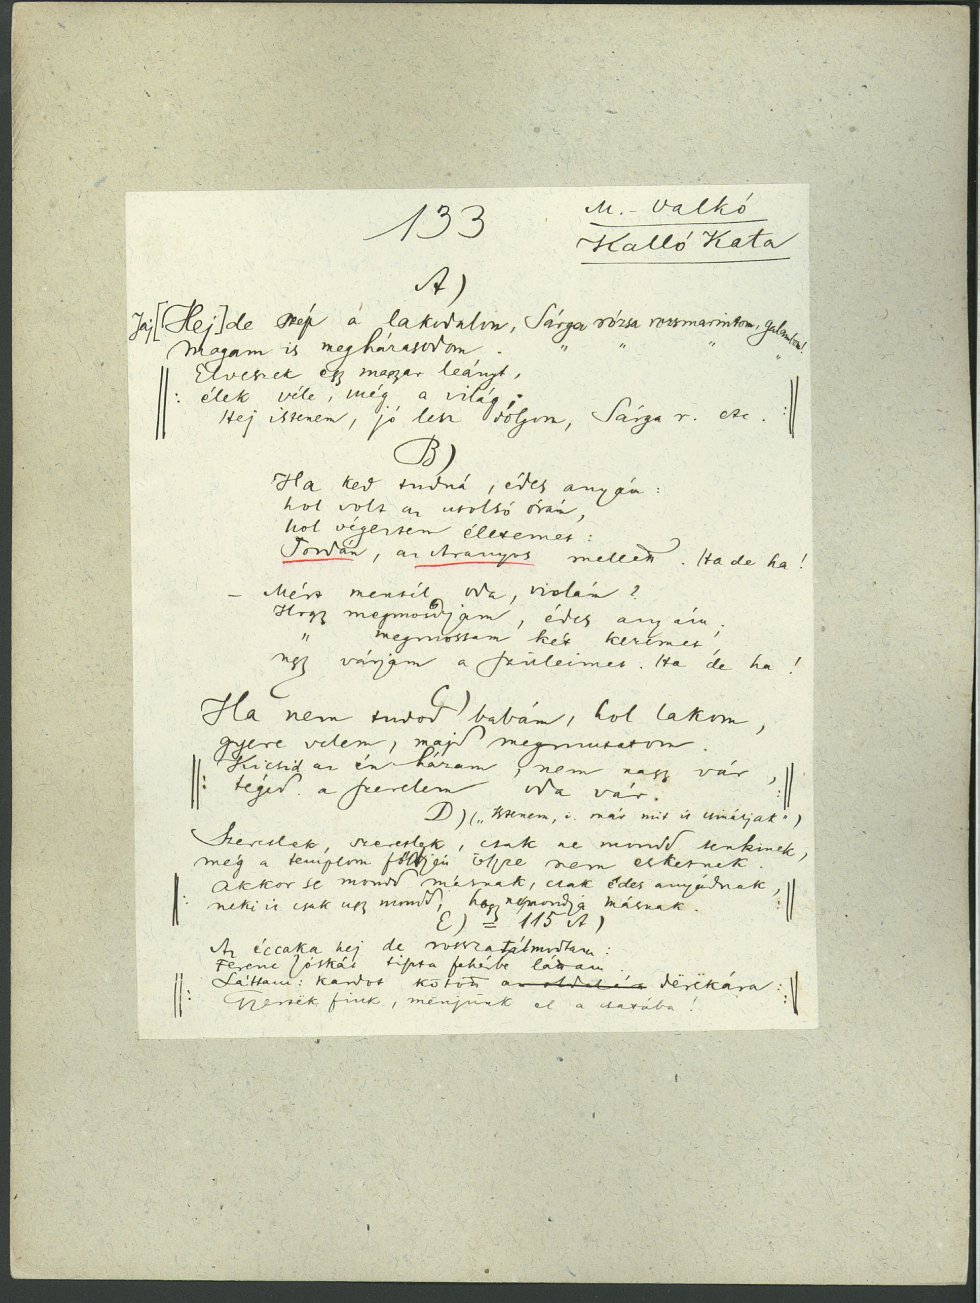 133
M.- Valkó
Kalló Kata
A)
Jaj [Hej] de szép a lakodalom, Sárga rózsa rozsmarintom, galambom!
Magam is megházasodom. " " " "
Elveszek egy magyar leányt,
élek véle, még a világ;
Hej istenem, jó lesz dógom, Sárga r. etc.
B)
Ha ked tudná, édes anyán:
hol volt az utolsó órán,
hol végeztem életemet:
Tordán, az Aranyos mellett. Ha de ha!
– Mért mentél oda, violán?
Hogy megmosdjam, édes anyám;
" megmossam két kezemet,
ugy várjam a szüleimet. Ha de ha!
C)
Ha nem tudod babám, hol lakom,
gyere velem, majd megmutatom.
Kicsid az én házam, nem nagy vár,
tégëd a szerelem oda vár.
D) („Istenem, i. már mit is csináljak")
Szeretlek, szeretlek, csak ne mondd senkinek,
még a templom földjén össze nem esketnek.
Akkor se mondd másnak, csak édes anyádnak,
neki is csak ugy mondd, hogy ne mondja másnak.
E) = 115 A)
Az éccaka hej de rosszat álmodtam:
Ferenc Jóskát tiszta fehérbe láttam
Láttam: kardot kötött az oldalára dërëkára:
Gyertek fiuk, menjünk el a csatába!